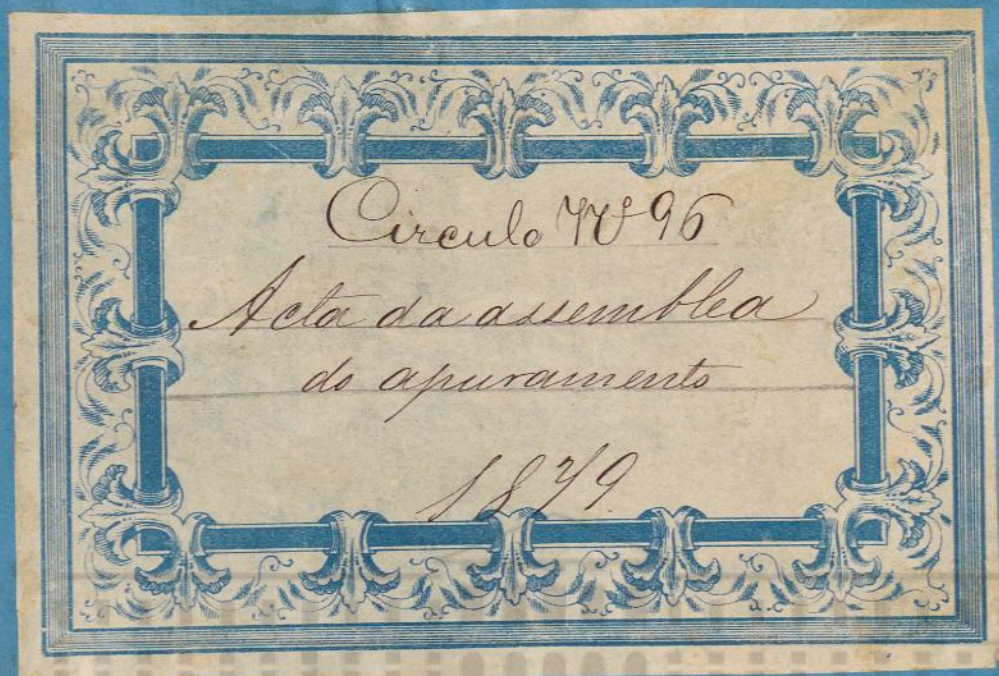 Circulo Nº 96
Acta da assemblea
do apuramento
1879